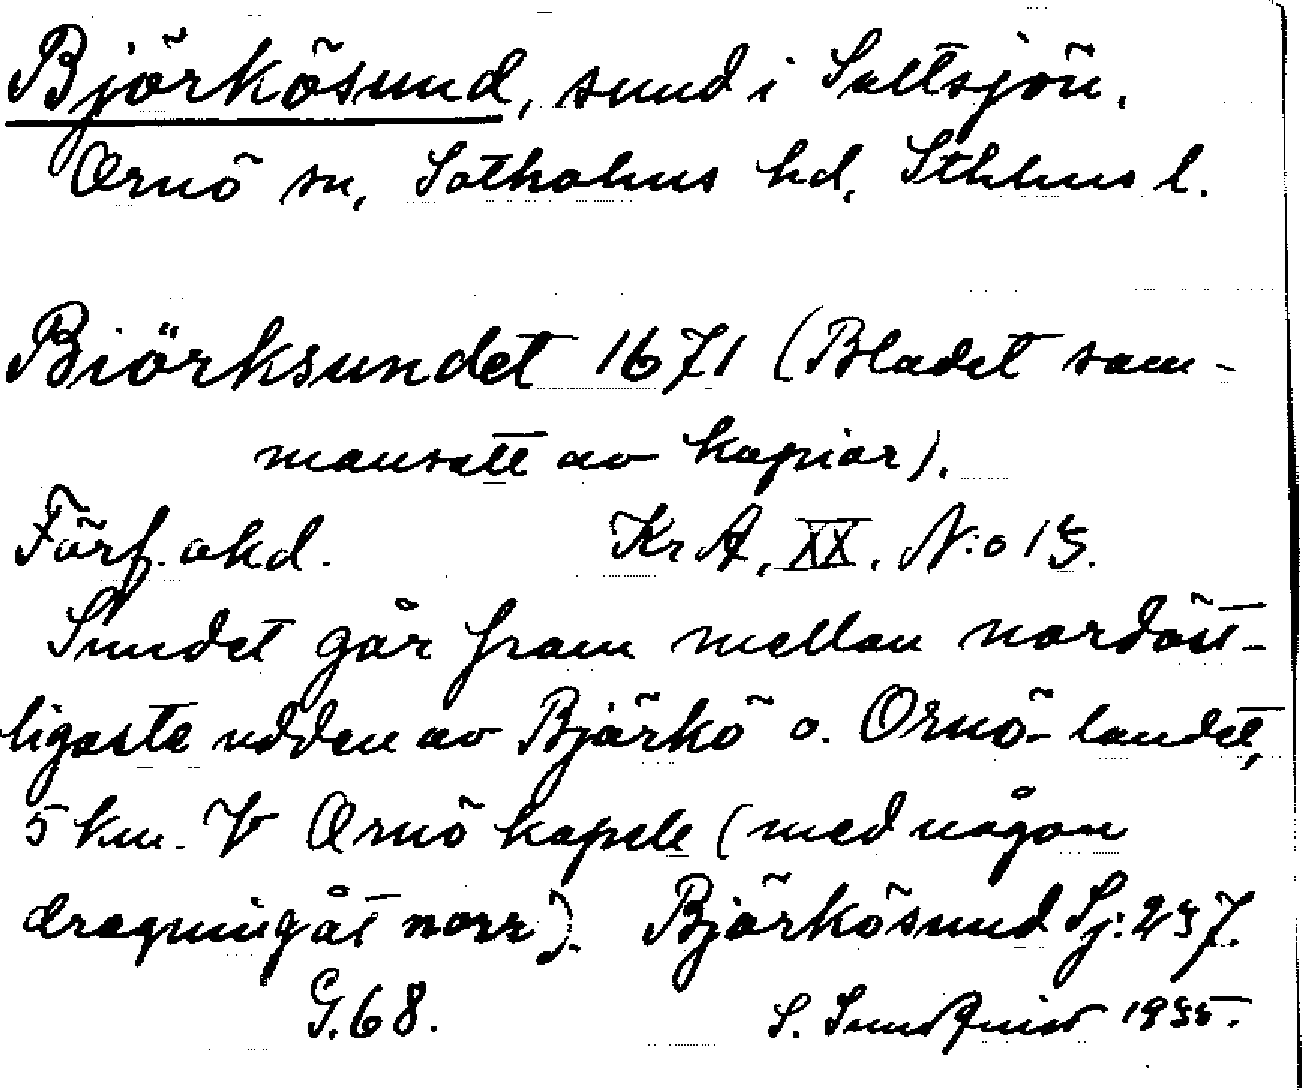 Björkösund, sund i Saltsjön.
Ornö sn, Sotholms hd, Sthlms l.
Biörksundet 1671 (Bladet sam-
mansatt av kopior).
Förf. okd. Kr A, XX. N:o 13.
Sundet går fram mellan nordöst-
ligaste udden av Björkö o. Ornö-landet,
5 km. V Ornö kapell (med någon
dragning åt norr). Björkösund Sj: 237.
G. 68. S. Sundquist 1935.